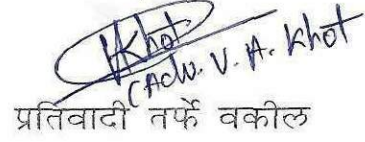 VKhot
(Adv. V. A. Khot
प्रतिवादी तर्फे वकील